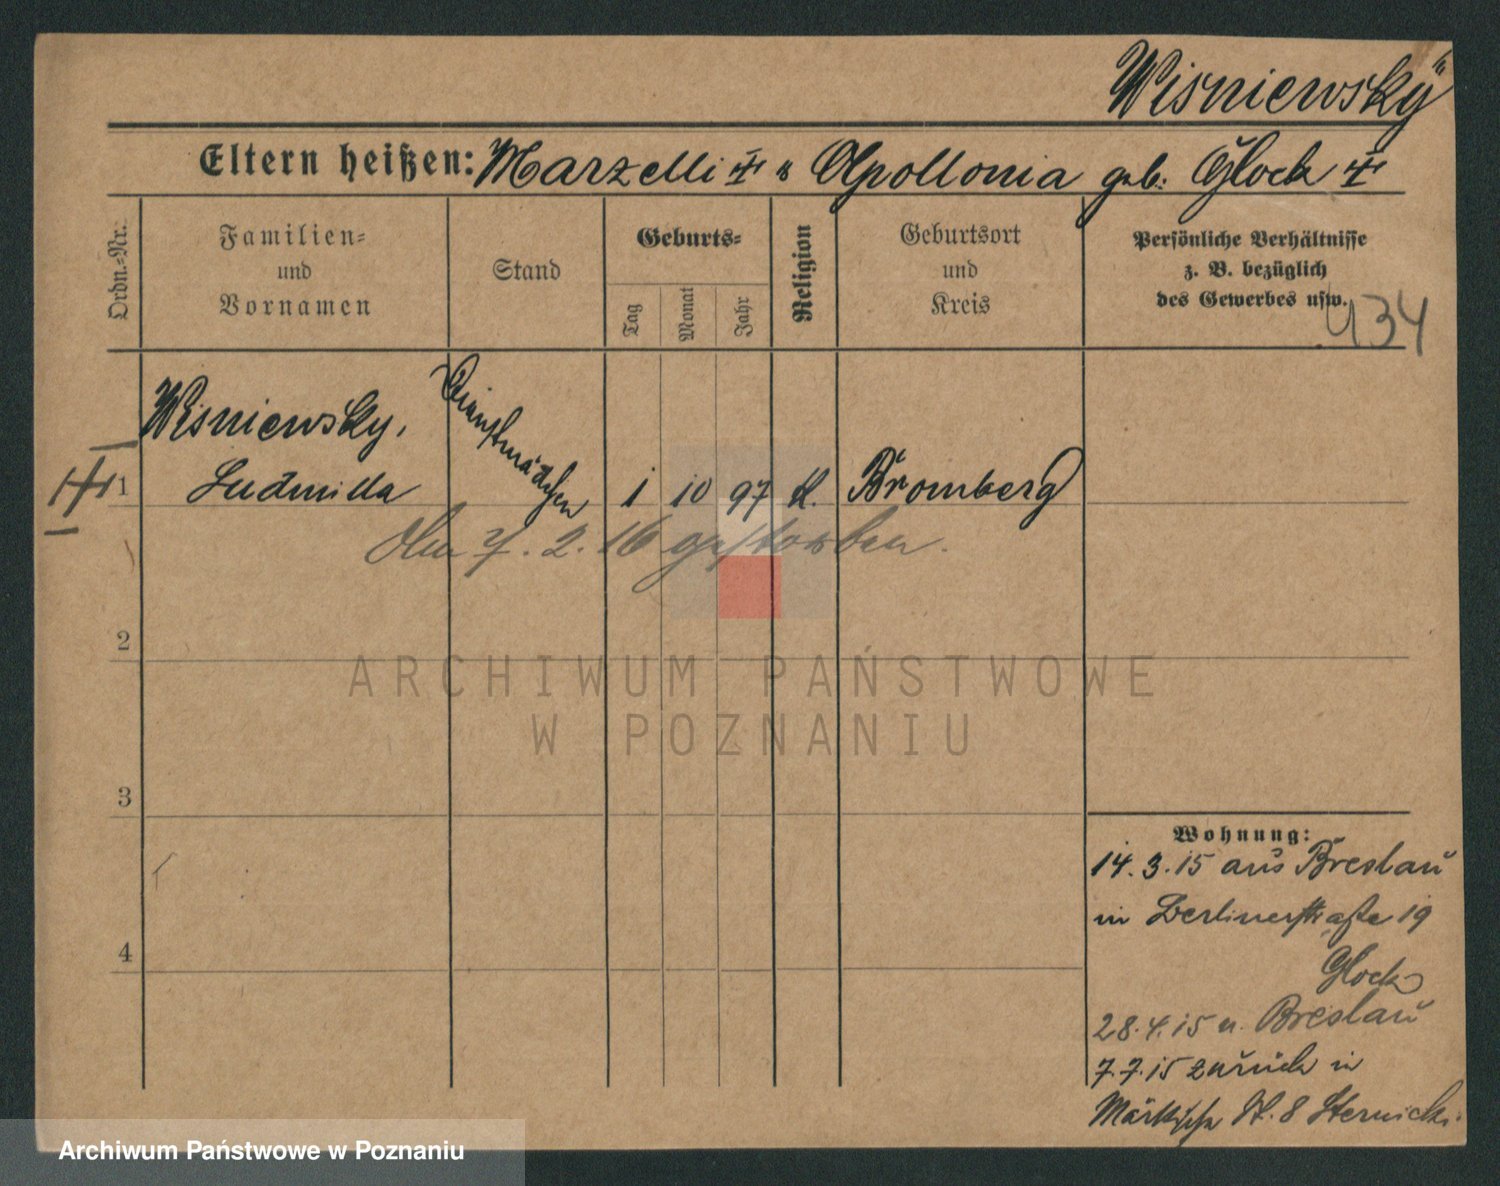 Wisniewsky
Eltern heißen: Marzelli u Apollonia geb. Glock
Ordn.-Nr.
Familien-
und
Vornamen
Stand
Geburts-
Tag
Monat
Jahr
Religion
Geburtsort
und
Kreis
Persönliche Verhältnisse
z. B. bezüglich
des Gewerbes usw.
434
Wisniewsky,
1 Ludmilla Dienstmädchen 1 10 97 K. Bromberg
Am 7. 2. 16 gestorben.
2
3
4
ARCHIWUM PAŃSTWOWE
W POZNANIU
Wohnung:
14.3.15 aus Breslau
in Berlinerstraße 19
Glock
28.4.15 n. Breslau
7.7.15 zurück in
Märkische St. 8 Sternicki.
Archiwum Państwowe w Poznaniu